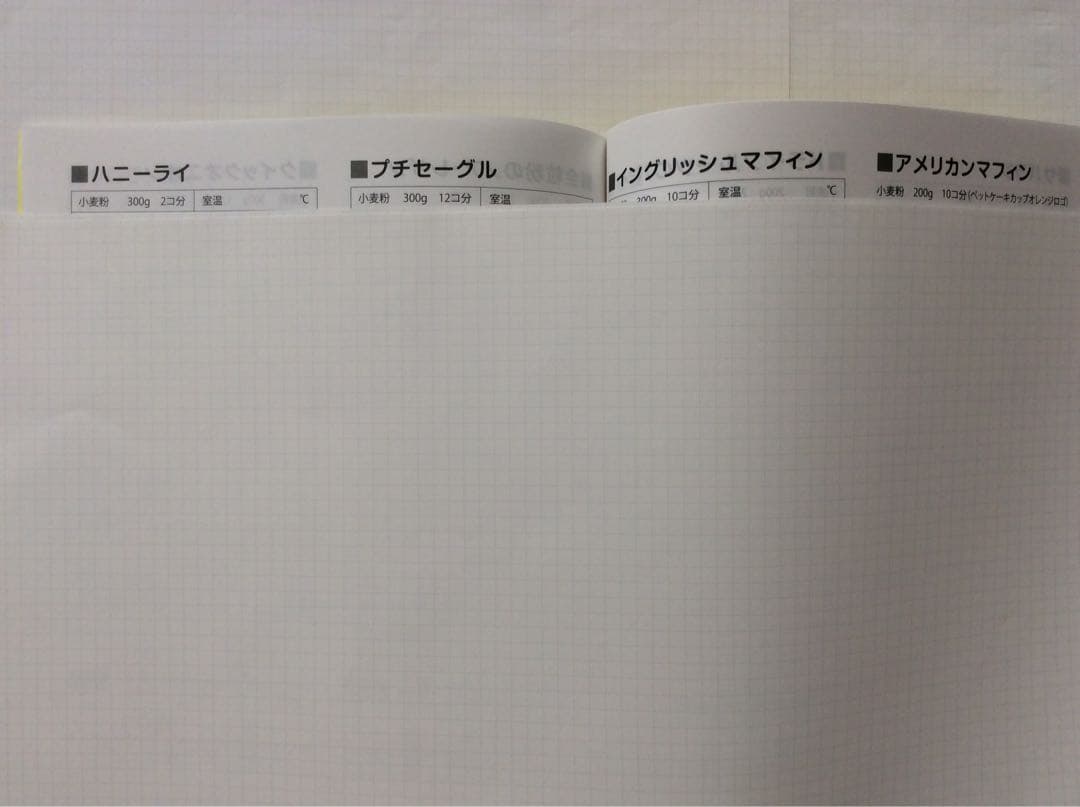 ■ハニーライ
小麦粉 300g 2コ分 室温 ℃
■プチセーグル
小麦粉 300g 12コ分 室温
■イングリッシュマフィン
300g 10コ分 室温 ℃
■アメリカンマフィン
小麦粉 200g 10コ分(ペットケーキカップオレンジロゴ)